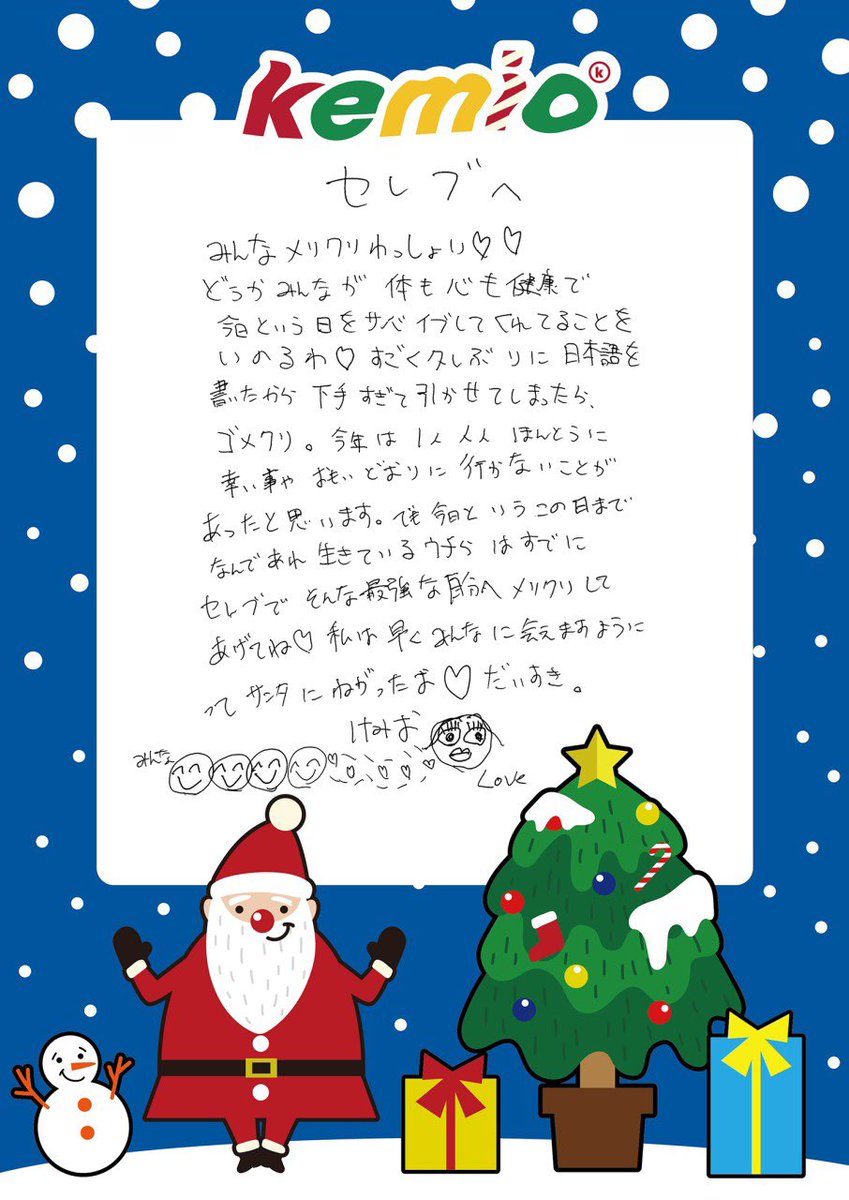 kemio
k
セレブへ
みんなメリクリわっしょい♡♡
どうかみんなが 体も心も健康で
今日という日をサバイブしてくれてることを
いのるわ♡ すごく久しぶりに日本語を
書いたから 下手すぎて引かせてしまったら、
ゴメクリ。今年は 1人人人 ほんとうに
幸い事や おもいどおりに行かないことが
あったと思います。でも今日というこの日まで
なんであれ 生きているウチらはすでに
セレブで そんな最強な自分へメリクリして
あげてね♡ 私は早くみんなに会えますように
って サンタにねがったお♡ だいすき。
けみお
みんな
Love